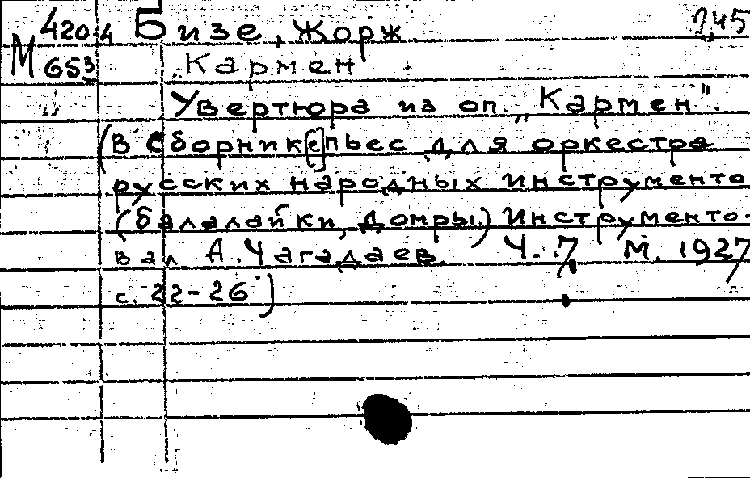 420-4 Бизе, Жорж 245
М 653 Кармен
Увертюра из оп. „Кармен".
(в Сборник[е] пьес для оркестра
русских народных инструменто
(балалайки, домры) Инструменто-
вал А. Чагадаев. Ч. 7 М. 1927
с. 22-26)